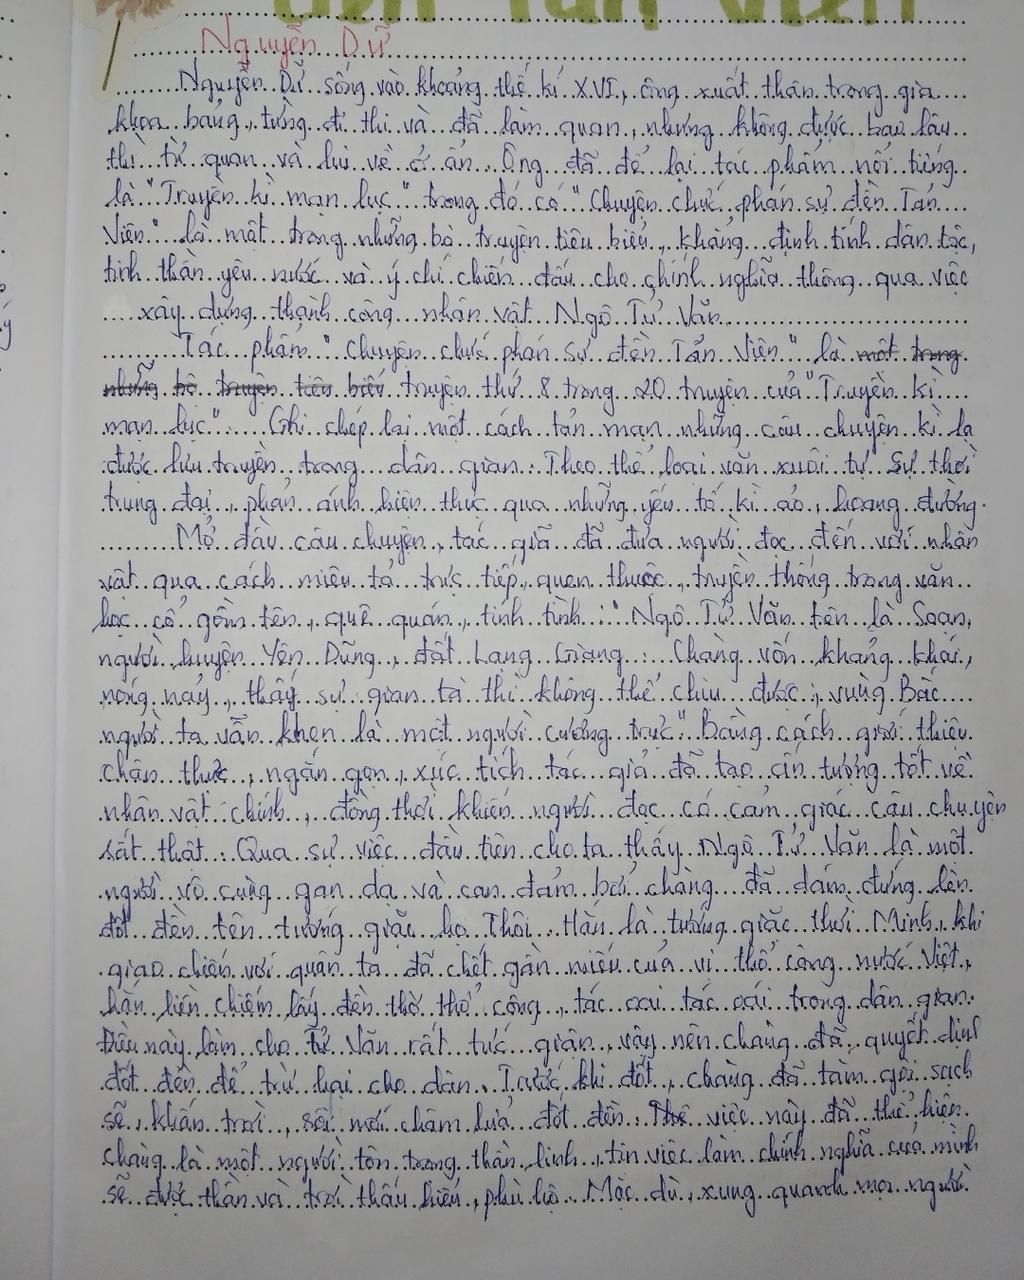 đền Tản Viên
Nguyễn Dữ
Nguyễn Dữ sống vào khoảng thế kỉ XVI, ông xuất thân trong gia
khoa bảng, từng đi thi và đã làm quan, nhưng không được bao lâu
thì từ quan và lui về ở ẩn. Ông đã để lại tác phẩm nổi tiếng
là "Truyền kì mạn lục" trong đó có "Chuyện chức phán sự đền Tản
Viên" là một trong những bô truyện tiêu biểu, khẳng định tính dân tộc,
tinh thần yêu nước và ý chí chiến đấu cho chính nghĩa thông qua việc
xây dựng thành công nhân vật Ngô Tử Văn
Tác phẩm "Chuyện chức phán sự đền Tản Viên" là một trong
những bô truyện tiêu biểu truyện thứ 8 trong 20 truyện của "Truyền kì
mạn lục". Ghi chép lại một cách tản mạn những câu chuyện kì lạ
được lưu truyền trong dân gian. Theo thể loại văn xuôi tự sự thời
trung đại, phản ánh hiện thực qua những yếu tố kì ảo, hoang đường.
Mở đầu câu chuyện, tác giã đã đưa người đọc đến với nhân
vật qua cách miêu tả trực tiếp, quen thuộc, truyền thống trong văn
học cổ gồm tên, quê quán, tính tình: "Ngô Tử Văn tên là Soạn,
người huyện Yên Dũng, đất Lạng Giang. Chàng vốn khảng khái,
nóng nảy, thấy sự gian tà thì không thể chịu được, vùng Bắc
người ta vẫn khen là một người cương trực". Bằng cách giới thiệu
chân thực, ngắn gọn, xúc tích tác giả đã tạo ấn tượng tốt về
nhân vật chính, đồng thời khiến người đọc có cảm giác câu chuyện
sát thật. Qua sự việc đầu tiên cho ta thấy Ngô Tử Văn là một
người vô cùng gan dạ và can đảm bởi chàng đã dám đứng lên
đốt đền tên tướng giặc họ Thôi. Hắn là tướng giặc thời Minh, khi
giao chiến với quân ta đã chết gần miếu của vị thổ công nước Việt,
hắn liền chiếm lấy đền thờ thổ công, tác oai tác oái trong dân gian.
Điều này làm cho Tử Văn rất tức giận, vậy nên chàng đã quyết định
đốt đền để trừ hại cho dân. Trước khi đốt, chàng đã tắm gội sạch
sẽ, khấn trời, rồi mới châm lửa đốt đền. việc này đã thể hiện
chàng là một người tôn trọng thần linh, tin việc làm chính nghĩa của mình
sẽ được thần và trời thấu hiểu, phù hộ. Mặc dù, xung quanh mọi người